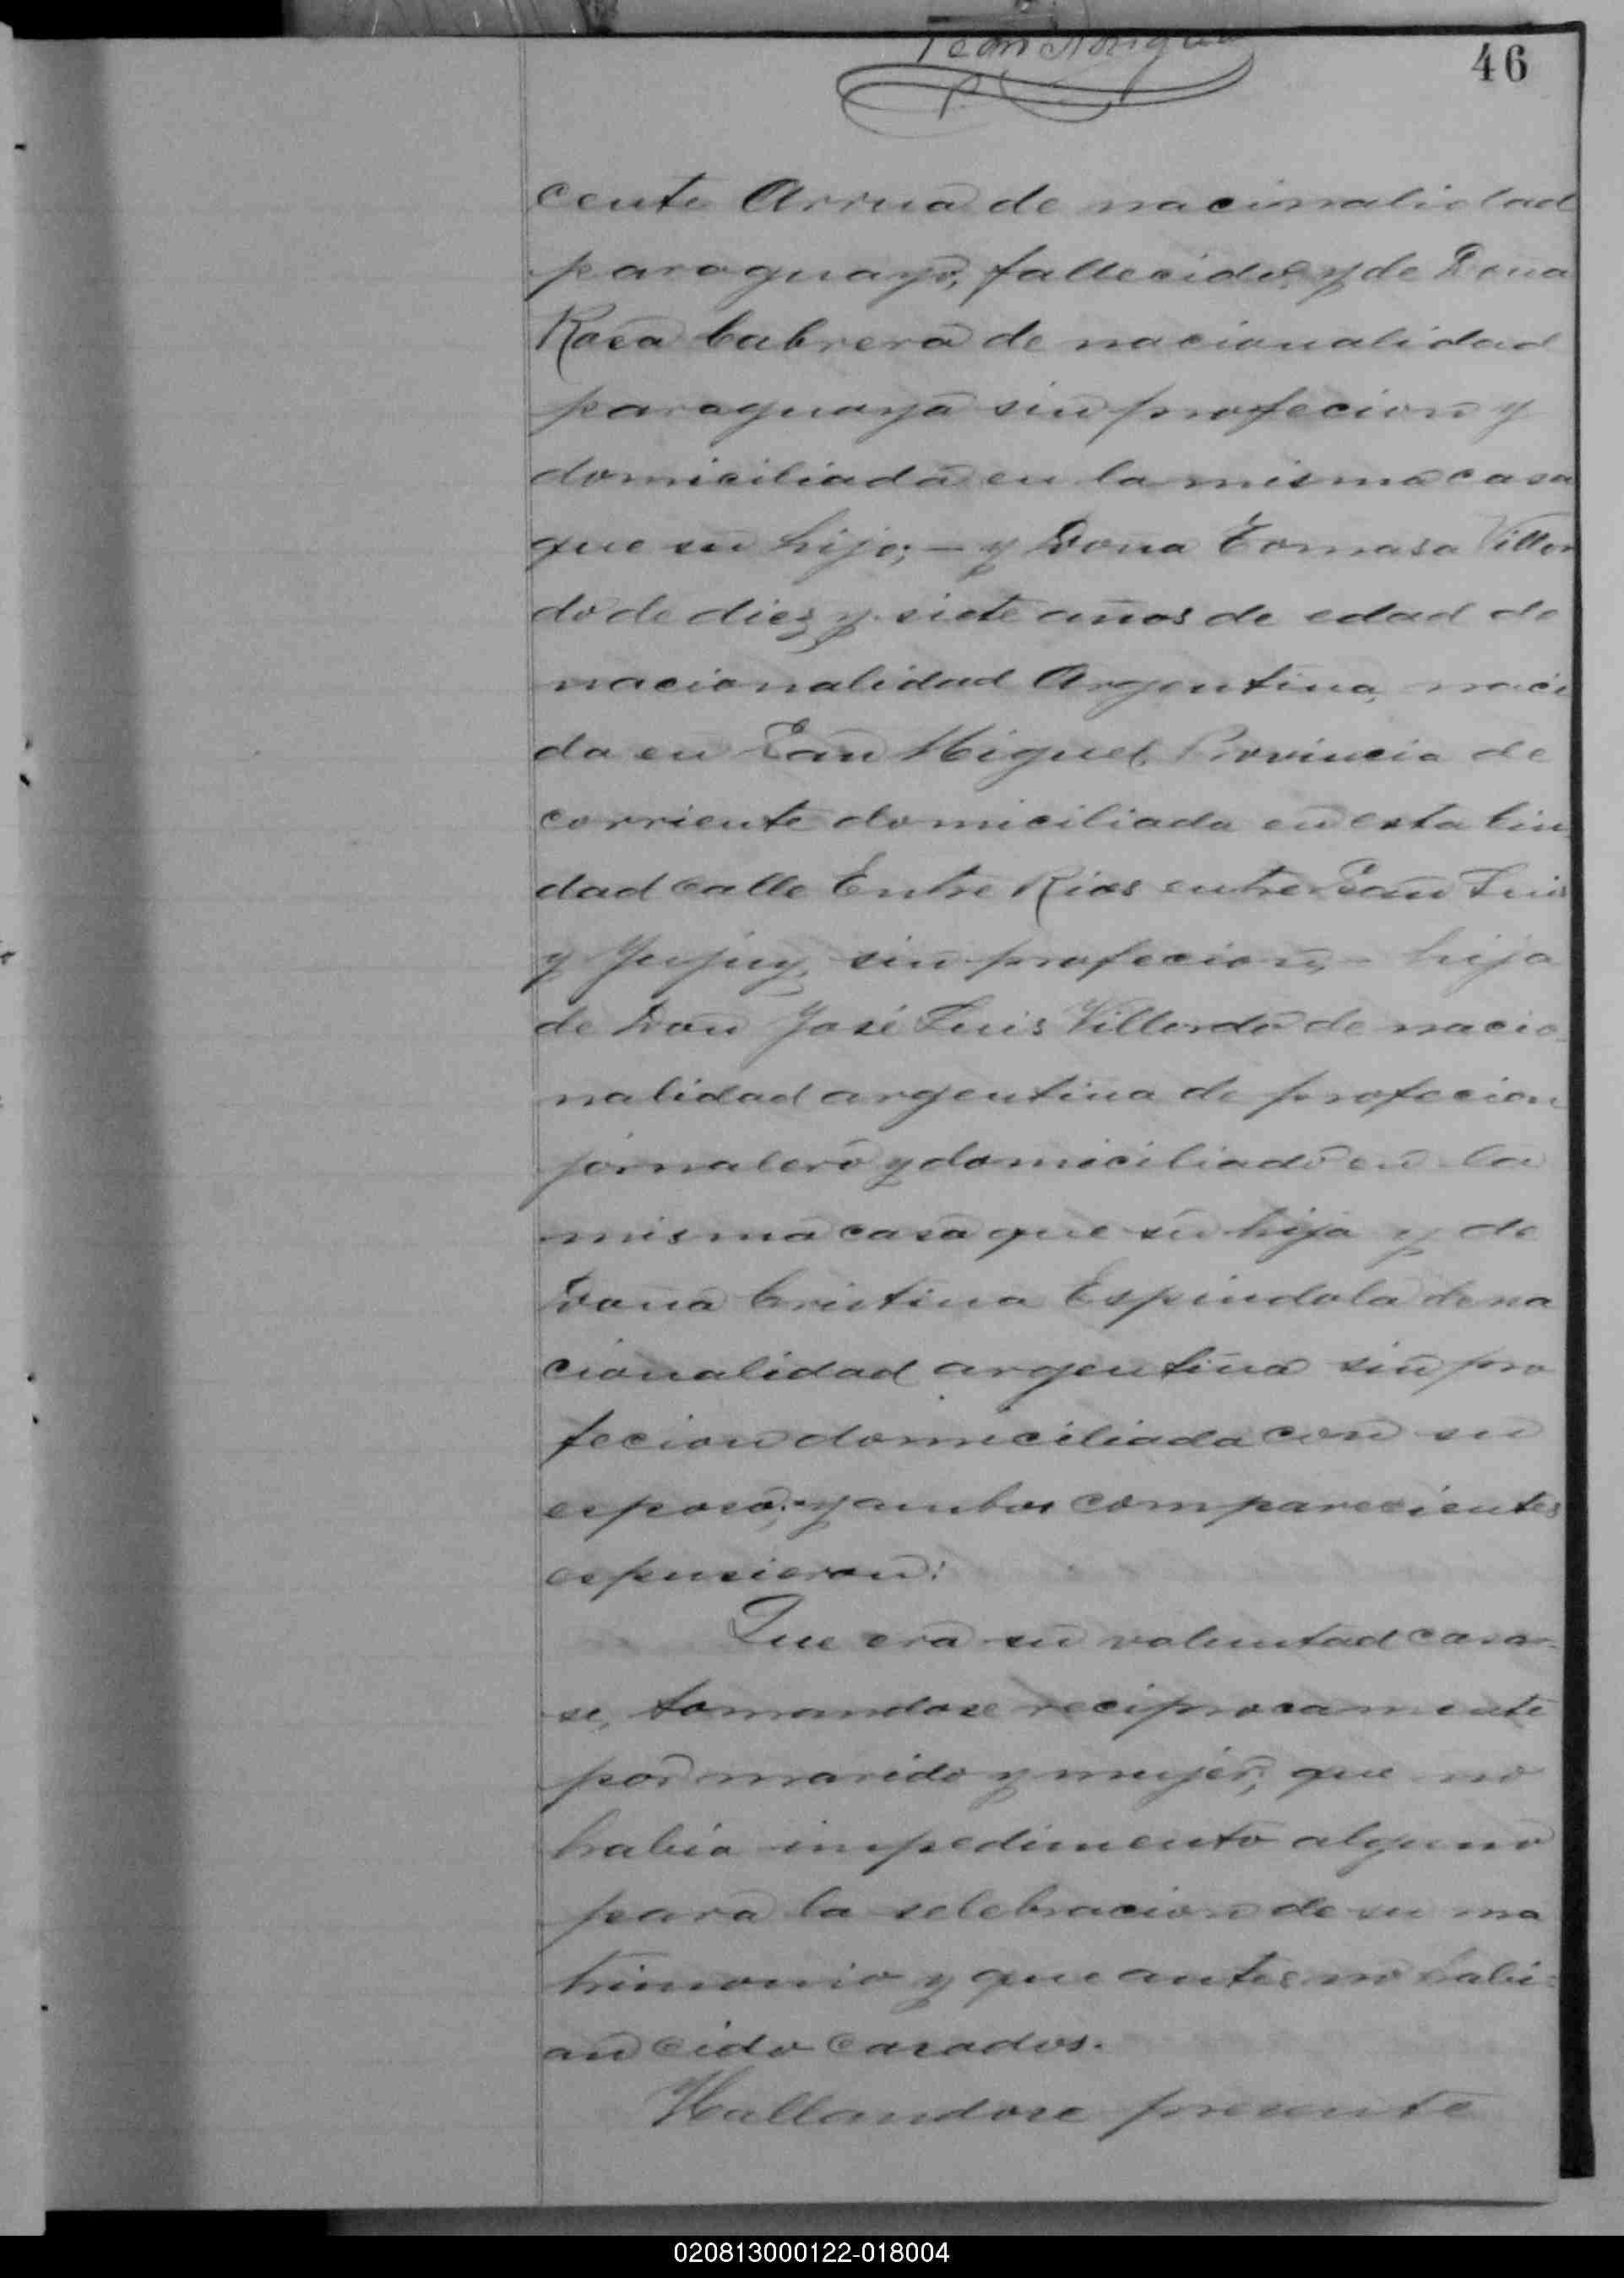 46
cente Arrua de nacionalidad
paraguayo, fallecido, y de Dona
Rosa Cabrera de nacionalidad
paraguaya sin profecion y
domiciliada en la misma casa
que su hijo; — y Dona Tomasa Villor
do de diez y siete años de edad de
nacionalidad Argentina, naci
da en San Miguel, Provincia de
corriente domiciliada en esta Ciu
dad calle Entre Rios entre San Luis
y Jujuy, sin profecion, - hija
de Don José Luis Villordo de nacio
nalidad argentina de profecion
jornalero y domiciliado en la
misma casa que su hija y de
Doña Cristina Espindola de na
cionalidad argentina sin pro
fecion domiciliada con su
esposo; y ambos comparecientes
espusieron:
Que era su voluntad casar
se, tomandose reciprocamente
por marido y mujer, que no
habia impedimento alguno
para la selebracion de su ma
trimonio y que antes no habi=
an cido casados.
Hallandose presente
020813000122-018004